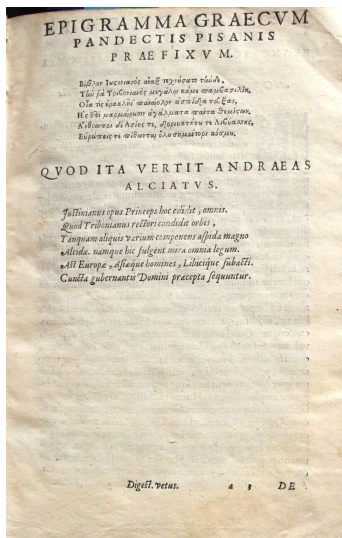 EPIGRAMMA GRAECVM
PANDECTIS PISANIS
PRAEFIXVM.
Βίβλον Ἰουστινιανὸς ἄναξ τεχνήσατο τάυδε,
Τὴν ῥα Τριβωνιανὸς μεγάλῳ κάμε παμβασιλῆϊ,
Οἷα τις ἡρακλῆϊ παναίολον ἀσπίδα τεύξας,
Ἄνθρωποι δὲ Ἀσίης τε, δορυκτήτου τε Λιβύσσης,
Εὐρώπης τε πίθοντο
QVOD ITA VERTIT ANDRAEAS
ALCIATVS.
Justinianus opus Princeps hoc edidit, omnis.
Quod Tribonianus rectori condidit orbis,
Tanquam aliquis varium componens aspida magno
Alcidæ. namque hic fulgent mira omnia legum.
Ast Europæ, Asiæque homines, Libicique subacti.
Cuncta gubernantis Domini præcepta sequuntur.
Digest. vetus. a 3 DE